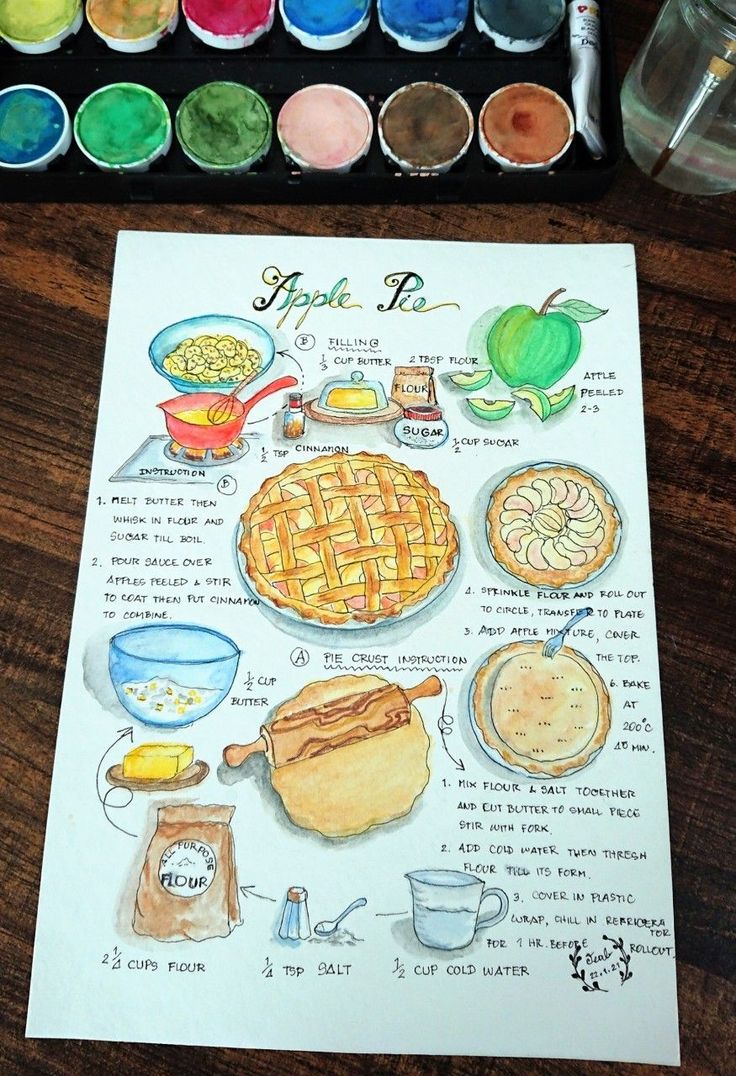 Apple Pie
B FILLING
1/3 CUP BUTTER
2 TBSP FLOUR
FLOUR
SUGAR
1/2 TSP CINNAMON
1/2 CUP SUGAR
APPLE
PEELED
2-3
INSTRUCTION
B
1. MELT BUTTER THEN
WHISK IN FLOUR AND
SUGAR TILL BOIL.
2. POUR SAUCE OVER
APPLES PEELED & STIR
TO COAT THEN PUT CINNAMON
TO COMBINE.
4. SPRINKLE FLOUR AND ROLL OUT
TO CIRCLE, TRANSFER TO PLATE
3. ADD APPLE MIXTURE, COVER
THE TOP.
6. BAKE
AT
200°C
45 MIN.
A PIE CRUST INSTRUCTION
1/2 CUP
BUTTER
1. MIX FLOUR & SALT TOGETHER
AND CUT BUTTER TO SMALL PIECE
STIR WITH FORK.
2. ADD COLD WATER THEN THRESH
FLOUR TILL ITS FORM.
3. COVER IN PLASTIC
WRAP, CHILL IN REFRIGERA
TOR
FOR 1 HR. BEFORE ROLLOUT.
ALL PURPOSE
FLOUR
2 1/4 CUPS FLOUR
1/4 TSP SALT
1/2 CUP COLD WATER